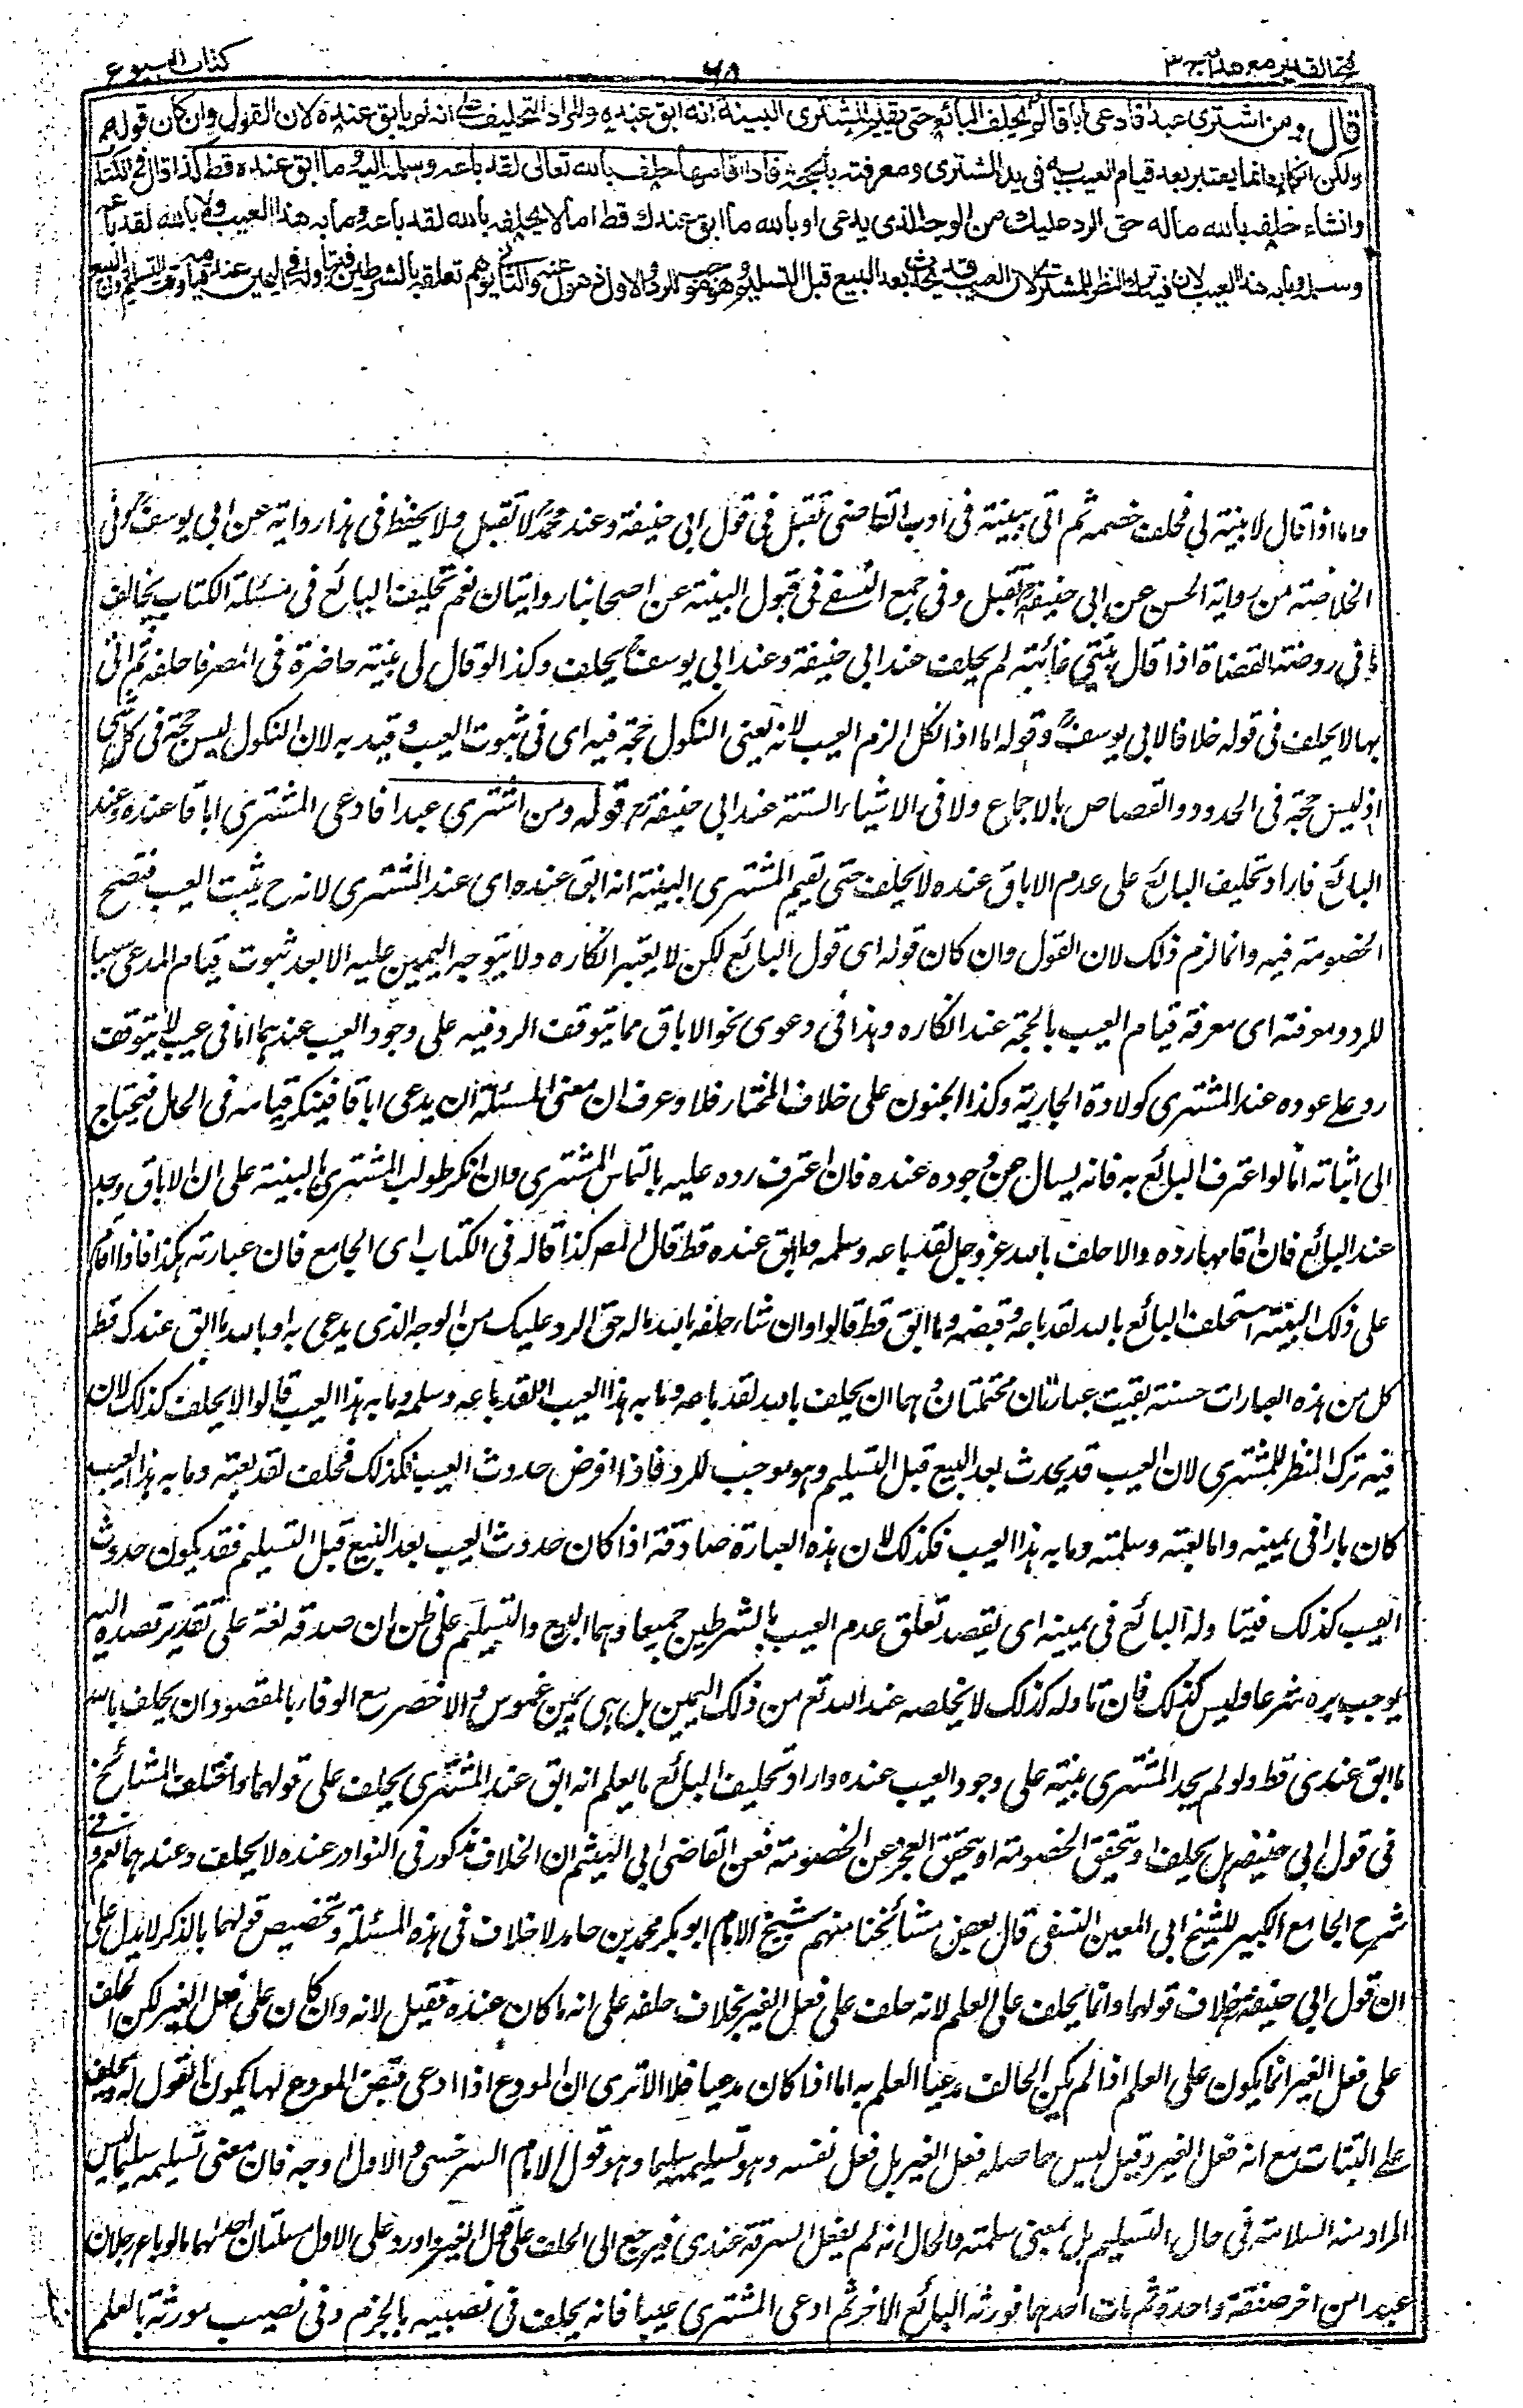 فتح القدير مع هدايه ج ٣
٦٨
كتاب البيوع
قال ومن اشترى عبدا فادعى اباقا لم يحلف البائع حتى يقيم المشترى البينة انه ابق عنده والمراد التحليف على انه لم يابق عنده لان القول وان كان قوله
ولكن انكاره انما يعتبر بعد قيام العيب به فى يد المشترى ومعرفته بالحجة فاذا اقامها حلف بالله تعالى لقد باعه وسلمه اليه وما ابق عنده قط كذا قال فى الكتاب
وان شاء حلفه بالله ماله حق الرد عليك من الوجه الذى يدعى او بالله ما ابق عندك قط اما لا يحلفه بالله لقد باعه وما به هذا العيب ولا بالله لقد باعه
وسلمه وما به هذا العيب لان فيه ترك النظر للمشترى لان العيب قد يحدث بعد البيع قبل التسليم وهو موجب للرد والاول ذهول عنه والثانى يوهم تعلقه بالشرطين فيتاوله فى اليمين عند قيامه وقت التسليم دون البيع
واما اذا قال لا بينة لى فحلف خصمه ثم اتى ببينة فى ادب القاضى تقبل فى قول ابى حنيفة وعند محمد لا تقبل ولا يحفظ فى هذا رواية عن ابى يوسف وفى
الخلاصة من رواية الحسن عن ابى حنيفة تقبل وفى جمع النسفى فى قبول البينة عن اصحابنا روايتان نعم تحليف البائع فى مسئلة الكتاب يخالف
ما فى روضة القضاة اذا قال بينتى غائبة لم يحلف عند ابى حنيفة وعند ابى يوسف يحلف وكذا لو قال لى بينة حاضرة فى المصر فاحلفه ثم اتى
بها لا يحلف فى قوله خلافا لابى يوسف وقوله اما اذا نكل الزم العيب لانه يعنى النكول حجة فيه اى فى ثبوت العيب وقيد به لان النكول ليس حجة فى كل شى
اذ ليس حجة فى الحدود والقصاص بالاجماع ولا فى الاشياء الستة عند ابى حنيفة قوله ومن اشترى عبدا فادعى المشترى اباقا عنده وعند
البائع فاراد تحليف البائع على عدم الاباق عنده لا يحلف حتى تقيم المشترى البينة انه ابق عنده اى عند المشترى لانه ح يثبت العيب فتصح
الخصومة فيه وانما لزم ذلك لان القول وان كان قوله اى قول البائع لكن لا يعتبر انكاره ولا يتوجه اليمين عليه الا بعد ثبوت قيام المدعى سببا
للرد ومعرفته اى معرفة قيام العيب بالحجة عند انكاره وهذا فى دعوى نحو الاباق مما يتوقف الرد فيه على وجود العيب عندهما اما فى عيب لا يتوقف
رد على عوده عند المشترى كولادة الجارية وكذا الجنون على خلاف المختار فلا وعرف ان معنى المسئلة ان يدعى اباقا فينكر قيامه فى الحال فيحتاج
الى اثباته اما لو اعترف البائع به فانه يسال عن وجوده عنده فان اعترف رده عليه بالتماس المشترى وان انكر طولب المشترى بالبينة على ان الاباق وجد
عند البائع فان اقامها رده والا حلف بالله عز وجل لقد باعه وسلمه وما ابق عنده قط قال المص كذا قاله فى الكتاب اى الجامع فان عبارته هكذا فاذا اقام
على ذلك البينة استحلف البائع بالله لقد باعه وقبضه وما ابق قط قالوا وان شاء حلفه بالله ماله حق الرد عليك من الوجه الذى يدعى به او بالله ما ابق عندك قط
كل من هذه العبارات حسنة بقيت عبارتان محتملتان وهما ان يحلف بالله لقد باعه وما به هذا العيب او لقد باعه وسلمه وما به هذا العيب قالوا لا يحلف كذلك لان
فيه ترك النظر للمشترى لان العيب قد يحدث بعد البيع قبل التسليم وهو موجب للرد فاذا فرض حدوث العيب كذلك فحلف لقد بعته وما به هذا العيب
كان بارا فى يمينه واما بعته وسلمته وما به هذا العيب فكذلك لان هذه العبارة صادقة اذا كان حدوث العيب بعد البيع قبل التسليم فقد يكون حدوث
العيب كذلك فيتاوله البائع فى يمينه اى يقصد تعلق عدم العيب بالشرطين جميعا وهما البيع والتسليم على ظن ان صدقه لغة على تقدير قصده اليه
يوجب بره شرعا وليس كذلك فان تاوله كذلك لا يخلصه عند الله تع من ذلك اليمين بل هى يمين غموس والاخصر مع الوفاء بالمقصود ان يحلف بالله
ما ابق عندى قط ولو لم يجد المشترى بينة على وجود العيب عنده واراد تحليف البائع ما يعلم انه ابق عند المشترى يحلف على قولهما واختلف المشائخ
فى قول ابى حنيفة هل يحلف او تتحقق الخصومة او يتحقق العجز عن الخصومة فعن القاضى ابى الهيثم ان الخلاف مذكور فى النوادر عنده لا يحلف وعندهما نعم وفى
شرح الجامع الكبير للشيخ ابى المعين النسفى قال بعض مشائخنا منهم الشيخ الامام ابو بكر محمد بن حامد لا خلاف فى هذه المسئلة وتخصيص قولهما بالذكر لا يدل على
ان قول ابى حنيفة خلاف قولهما وانما يحلف على العلم لانه حلف على فعل الغير بخلاف حلفه على انه ما كان عنده فقيل لانه وان كان على فعل الغير لكن الحلف
على فعل الغير انما يكون على العلم اذا لم يكن الحالف مدعيا العلم به اما اذا كان مدعيا فلا الا ترى ان المودع اذا ادعى قبض المودع لها يكون القول له ويحلف
على البتات مع انه فعل الغير وقيل ليس حاصله فعل الغير بل فعل نفسه وهو تسليمه سليما وهو قول الامام السرخسى والاول اوجه فان معنى تسليمه سليما ليس
المراد منه السلامة فى حال التسليم بل بمعنى سلمته والحال انه لم يفعل السرقة عندى فيرجع الى الحلف على فعل الغير واورد على الاول مسئلتان احدهما ما لو باع رجلان
عبدا من اخر صفقة واحدة ثم مات احدهما فورثه البائع الاخر ثم ادعى المشترى عيبا فانه يحلف فى نصيبه بالجزم وفى نصيب مورثه بالعلم